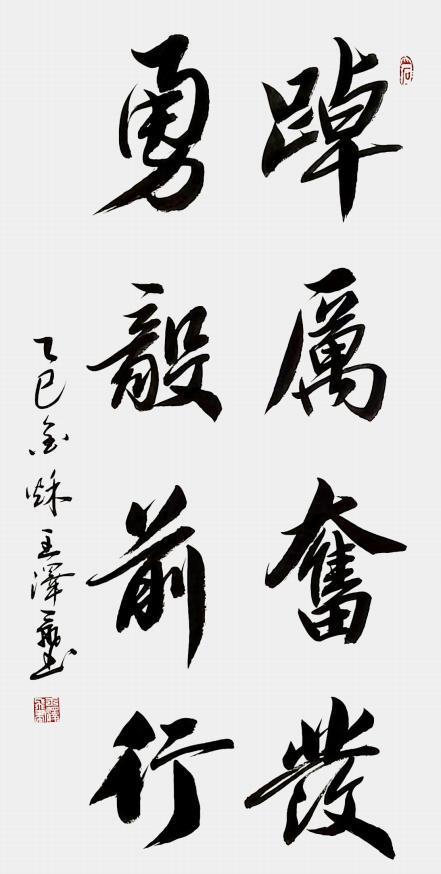 踔厲奮發
勇毅前行
乙巳金秌王澤